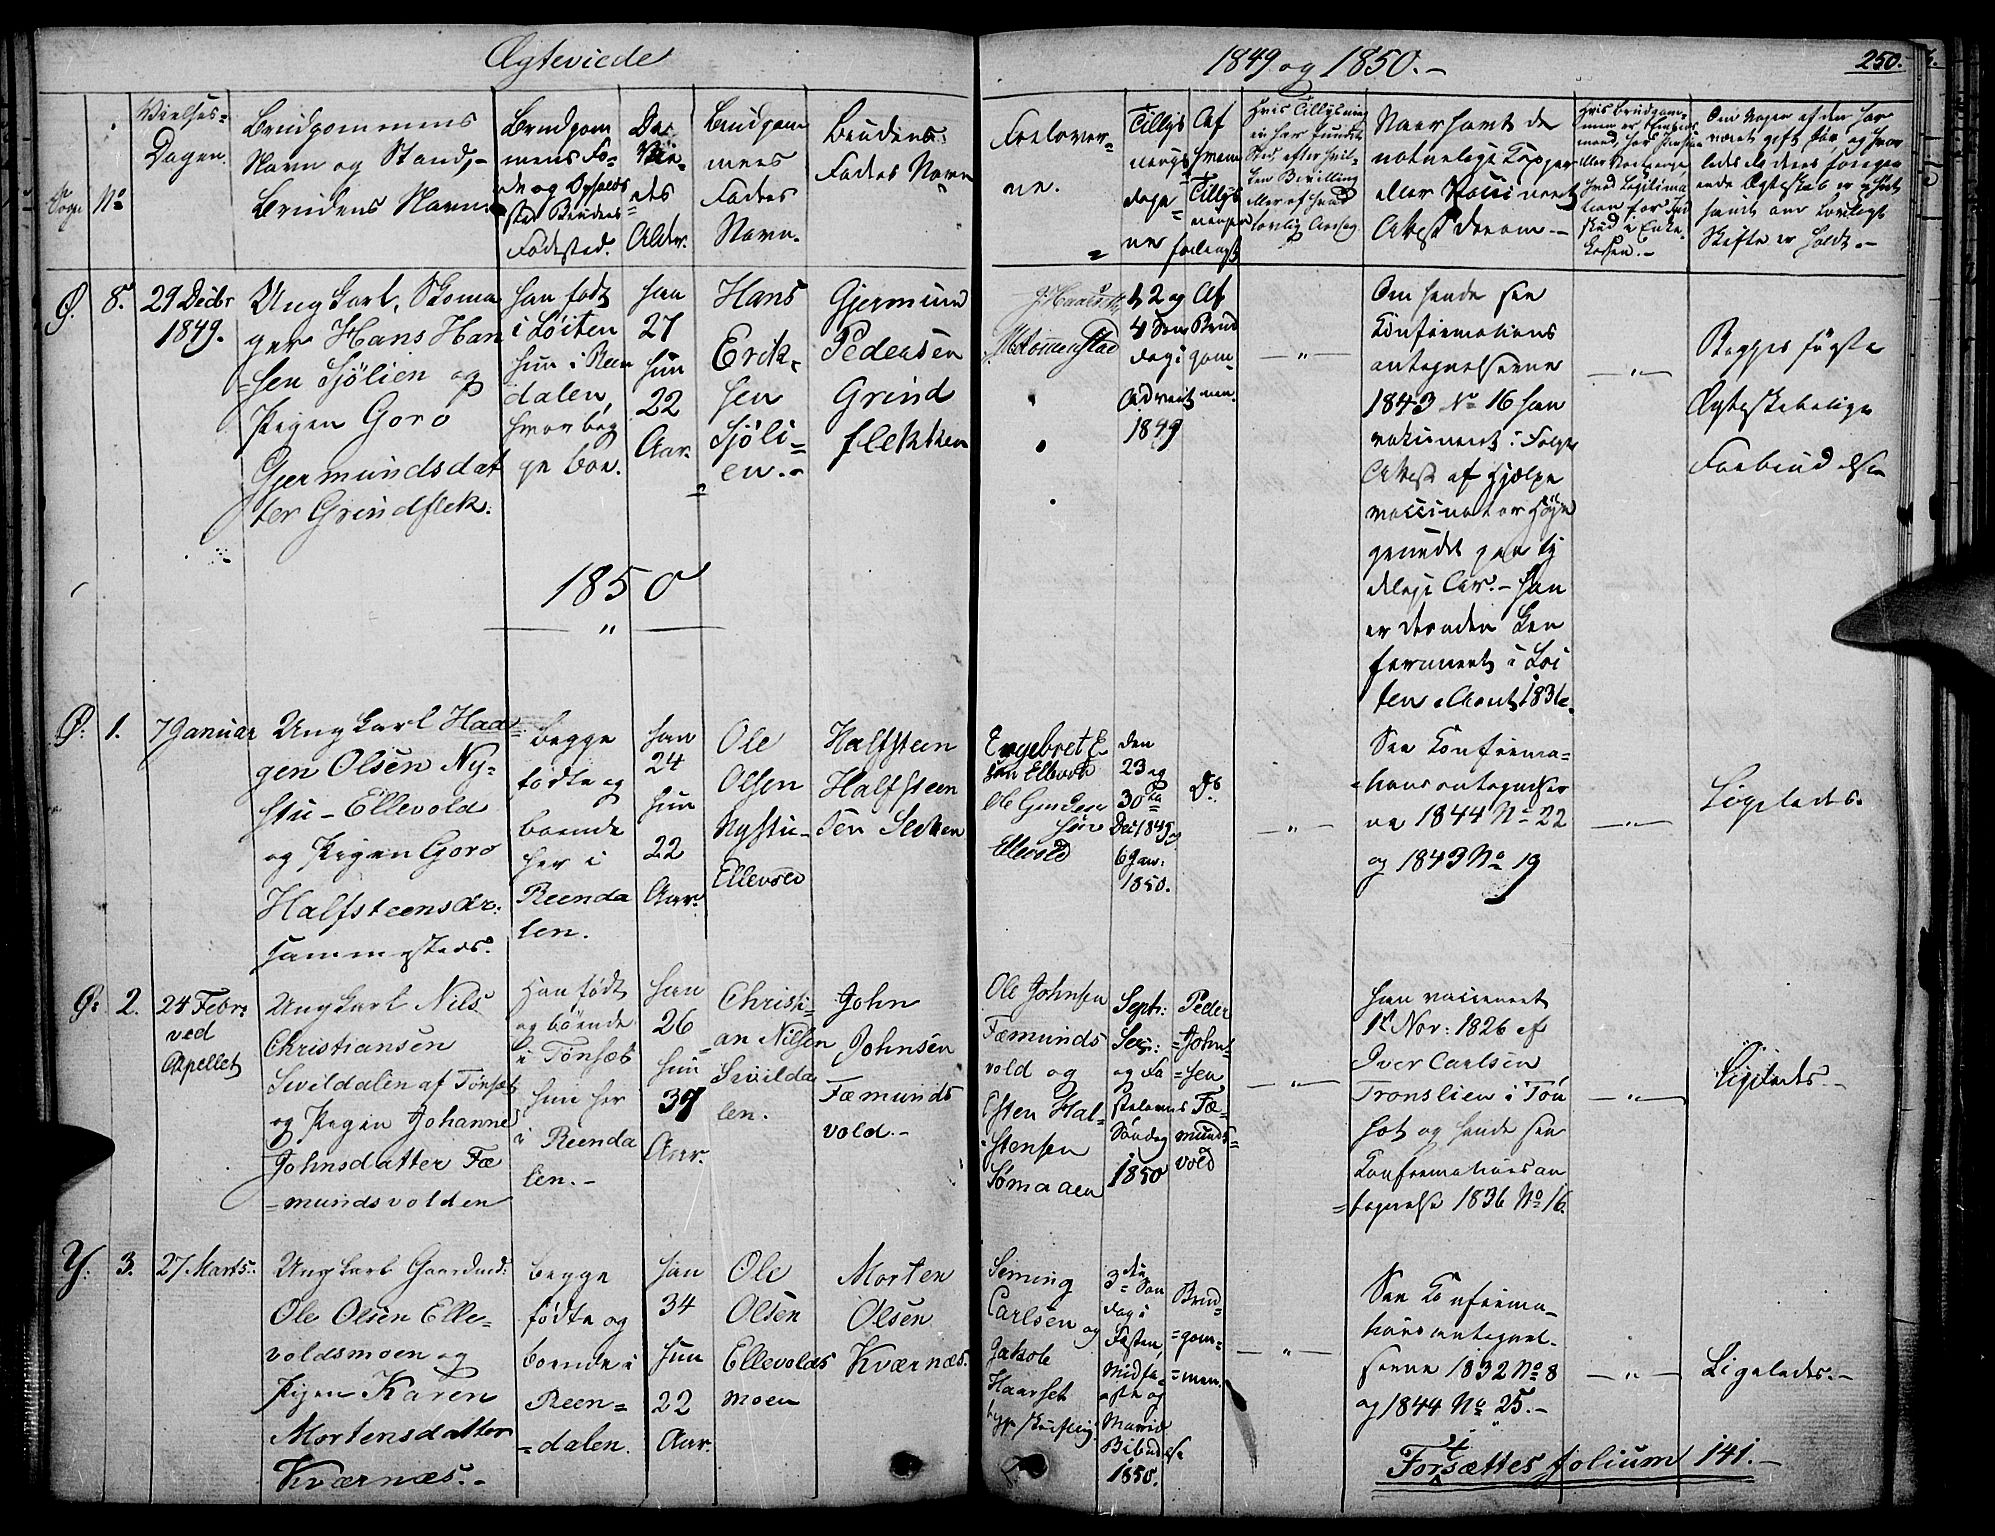 Ægteviede
1849 og 1850.-
250.
Sogn
No
Vielses-
Dagen.
Brudgommens
Navn og Stand,-
Brudens Navn.
Brudgom
mens Fø-
de og Opholds
sted Brudens
Fødested.
De
Vie-
des
Alder.
Brudgom
mens
Faders
Navn.
Brudens
Faders Navn
Forlover-
ne.
Tillys
nings
dage-
ne
Af
hvem
Tillys
ninger
forlangt
Naar samt de
naturlige Kopper
eller Vaccineret
Attest derom.-
Ø. 8. 29 Decbr
1849.
Ungkarl, Skoma
ger Hans Han
=sen Sjölien og
Pigen Goro
Gjermundsdat
ter Grindflek.
han født
i Løiten
hun i Reen
dalen,
hvor beg
ge boe.
han
27
hun
22
Aar.
Hans
Erik-
sen
Sjöli-
en.-
Gjermund
Pedersen
Grind
flekken
M. Lomenstad
1, 2 og
4 Søn
dag i
Advent
1849
Af
Brud
gom-
men.
Om hende see
Konfirmations
antegnelserne
1843 No 16 han
vakineret i Følge
Attest af Hjelpe
vaccinator
er desuden Con
firmeret i Løi
ten
Begges første
Ægteskabelige
Forbindelse
1850
Ø. 1. 7 Januar
Ungkarl Haa-
gen Olsen Ny-
stu- Ellevold
og Pigen Goro
Halfsteensdr:
sammesteds.
begge
fødte og
boende
her i
Reenda
len.
han
24
hun
22
Aar.
Ole
Olsen
Nystu-
Ellevold
Halfsteen
Halfsteen
sen
Engebret E.
sen Ellevold
Ellevold
den
23 og
30te
Dec 1849 og
6 Jan:
1850.
Do.
See Konfirma-
=tions antegnelser
ne 1844 No 22
og 1843 No 19
Ligeledes.
Ø: 2. 24 Febr:
ved
Capellet
Ungkarl Nils
Christiansen
Svildalen af Tønset
og Pigen Johanne
Johnsdatter Fæ
=mundsvolden
Han født
og boende
i Tønset
hun her
i Reenda
len.-
han
26
hun
37
Aar.
Christi-
an Nilsen
Svilda
len.
John
Johnsen
Fæmunds
vold.-
Ole Johnsen
Fæmunds
vold og
Esten Hal-
stensen
Sømaaen
Septr:
Sex:
og Fa
stelavns
Søndag
1850
Peder
=John=
=sen
Fæ-
munds=
vold
han vaccineret
1st Nov: 1826 af
Iver Carlsen
Tronslien i Tön
set og hende see
Konfirmationsan
tegnelse 1836 No 16.
Ligeledes.-
Y. 3. 27 Marts.
Ungkarl Gaardmd:
Ole Olsen Elle-
voldsmoen og
Pigen Karen
Mortensdatter
Kværnæs.-
begge
fødte og
boende i
Reen=
=dalen.
han
34
hun
22
Aar.
Ole
Olsen
Ellevolds
moen
Morten
Olsen
Kværnæs.
Seming
Carlsen og
Jakob
Haarset
3die Søn
dag i
Fasten,
Midfa-
ste og
Mariæ
Bebudelse
1850.
Brud=
=gom=
=men.
See Konfirma-
tions antegnel-
serne 1832 No 8
og 1844 No 25.-
Ligeledes.-
Forsættes folium 141.-